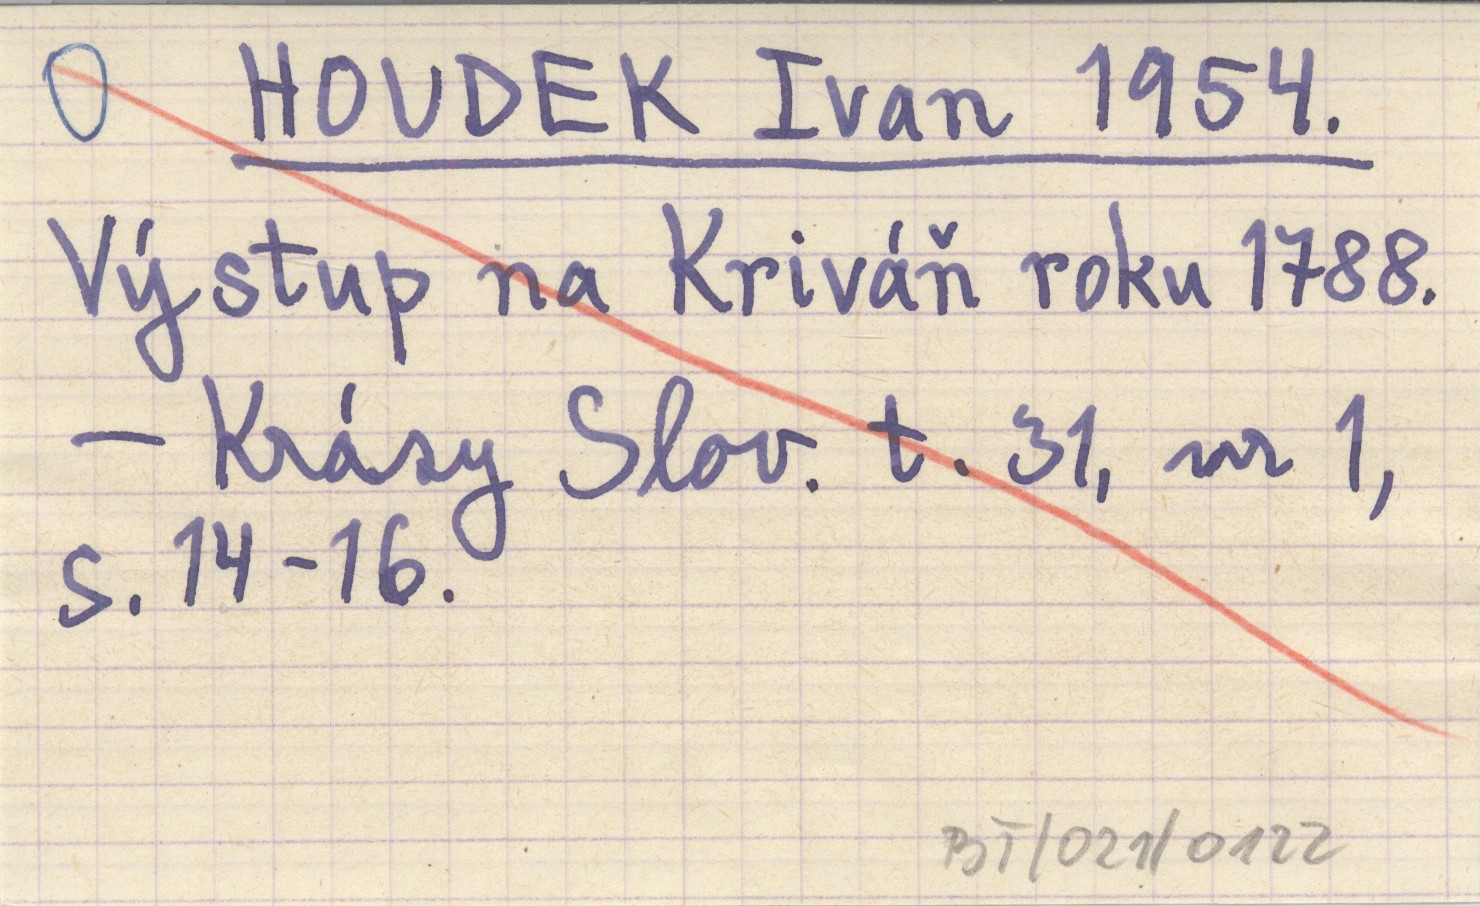 O HOUDEK Ivan 1954.
Výstup na Kriváň roku 1788.
— Krásy Slov. t. 31, nr 1,
s. 14-16.
BT/021/0122